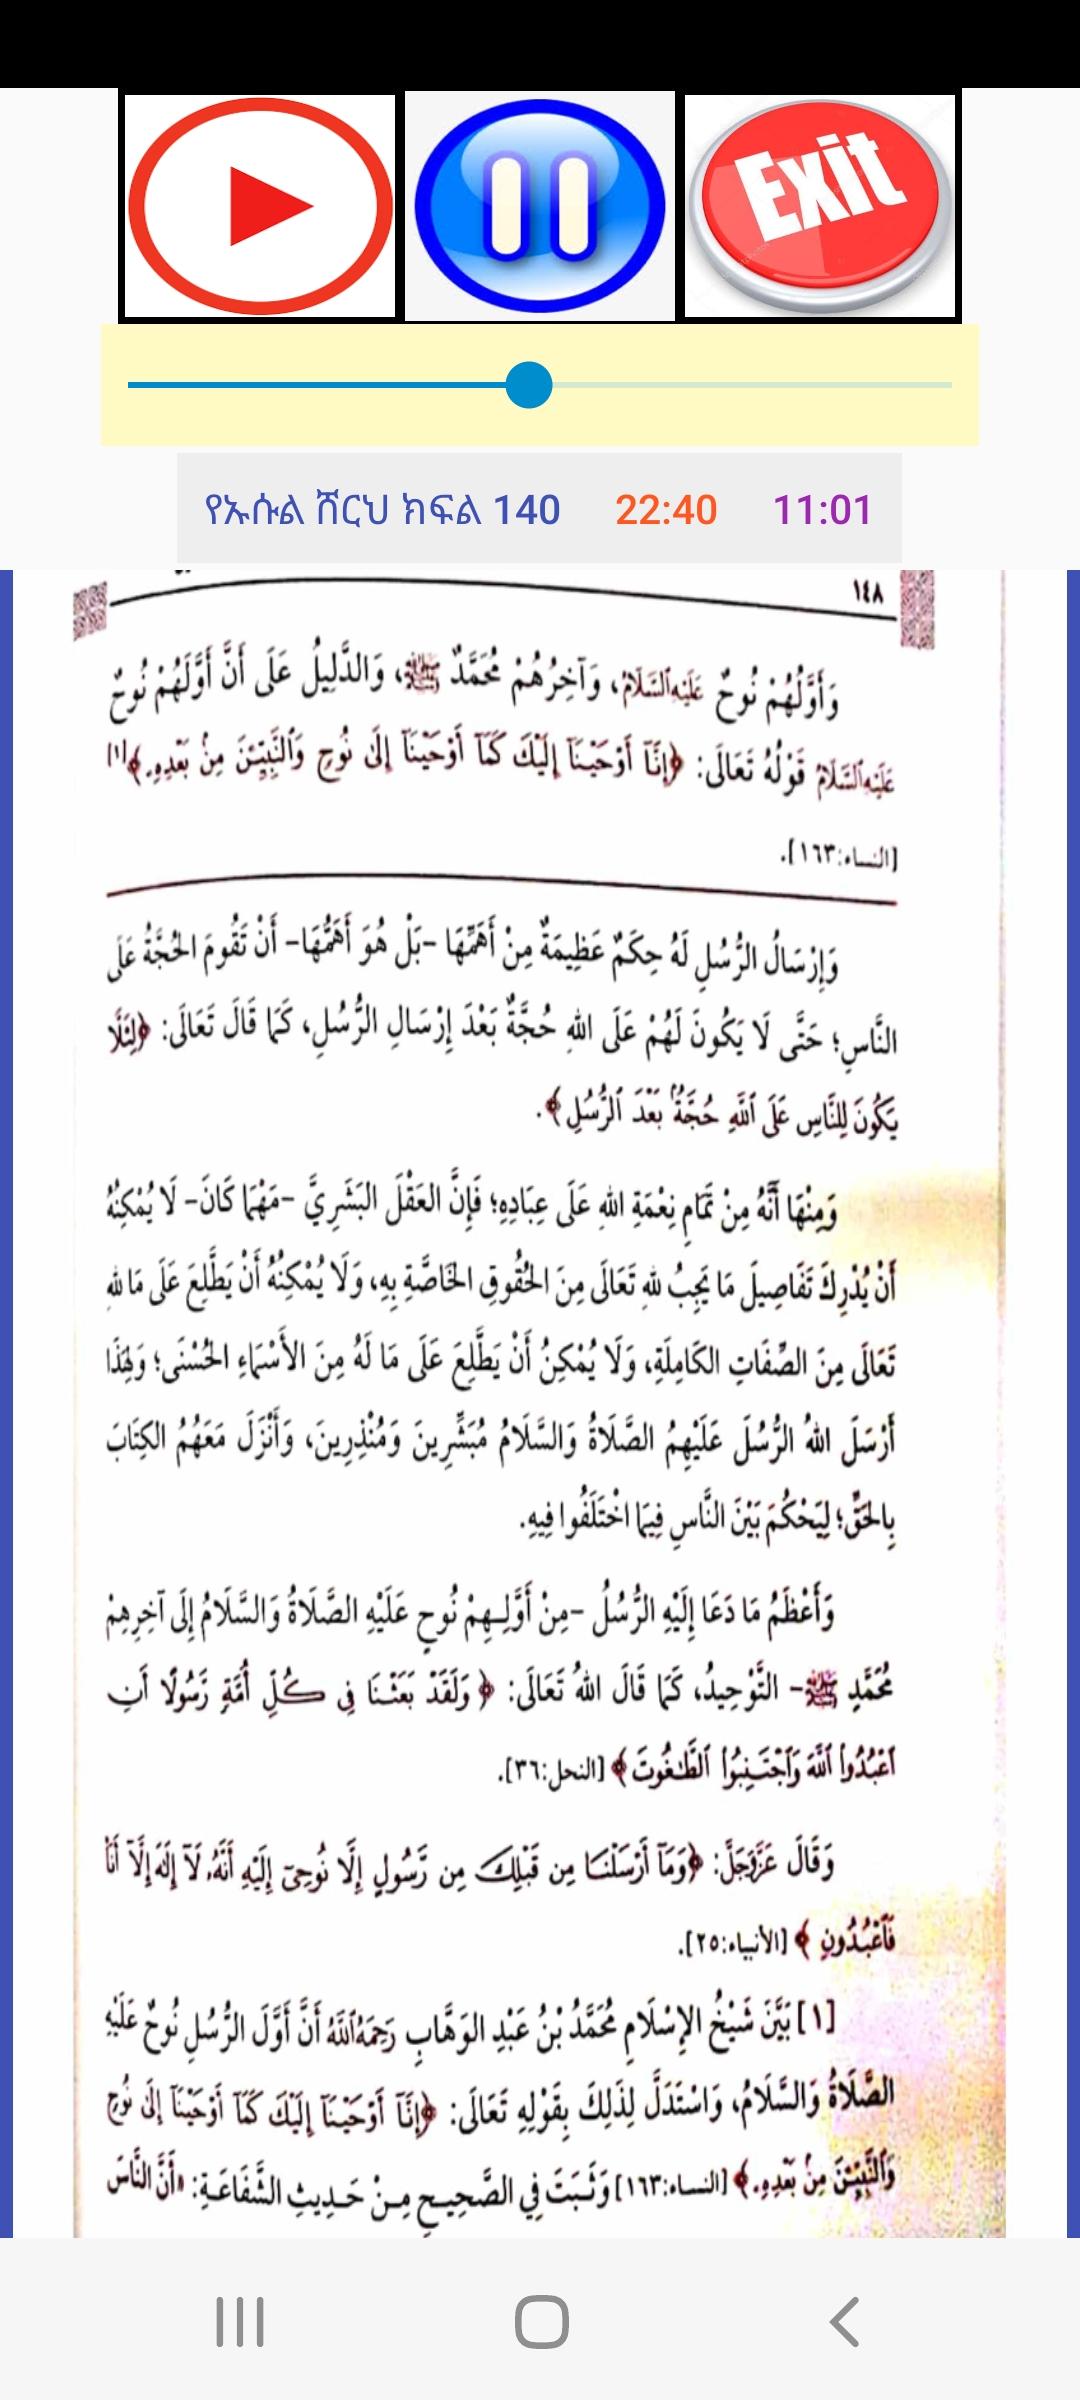 Exit
የኡሱል ሸርህ ክፍል 140 22:40 11:01
١٤٨
وَأَوَّلُهُمْ نُوحٌ عَلَيْهِ ٱلسَّلَامُ، وَآخِرُهُمْ مُحَمَّدٌ ﷺ، وَالدَّلِيلُ عَلَى أَنَّ أَوَّلَهُمْ نُوحٌ
عَلَيْهِ ٱلسَّلَامُ قَوْلُهُ تَعَالَى: ﴿إِنَّآ أَوْحَيْنَآ إِلَيْكَ كَمَآ أَوْحَيْنَآ إِلَىٰ نُوحٍ وَٱلنَّبِيِّـۧنَ مِنۢ بَعْدِهِۦ﴾[١]
[النساء:١٦٣].
وَإِرْسَالُ الرُّسُلِ لَهُ حِكَمٌ عَظِيمَةٌ مِنْ أَهَمِّهَا -بَلْ هُوَ أَهَمُّهَا- أَنْ تَقُومَ الحُجَّةُ عَلَى
النَّاسِ؛ حَتَّى لَا يَكُونَ لَهُمْ عَلَى اللهِ حُجَّةٌ بَعْدَ إِرْسَالِ الرُّسُلِ، كَمَا قَالَ تَعَالَى: ﴿لِئَلَّا
يَكُونَ لِلنَّاسِ عَلَى ٱللَّهِ حُجَّةٌۢ بَعْدَ ٱلرُّسُلِ﴾.
وَمِنْهَا أَنَّهُ مِنْ تَمَامِ نِعْمَةِ اللهِ عَلَى عِبَادِهِ؛ فَإِنَّ العَقْلَ البَشَرِيَّ -مَهْمَا كَانَ- لَا يُمْكِنُهُ
أَنْ يُدْرِكَ تَفَاصِيلَ مَا يَجِبُ للهِ تَعَالَى مِنَ الحُقُوقِ الخَاصَّةِ بِهِ، وَلَا يُمْكِنُهُ أَنْ يَطَّلِعَ عَلَى مَا للهِ
تَعَالَى مِنَ الصِّفَاتِ الكَامِلَةِ، وَلَا يُمْكِنُ أَنْ يَطَّلِعَ عَلَى مَا لَهُ مِنَ الأَسْمَاءِ الحُسْنَى؛ وَلِهَذَا
أَرْسَلَ اللهُ الرُّسُلَ عَلَيْهِمُ الصَّلَاةُ وَالسَّلَامُ مُبَشِّرِينَ وَمُنْذِرِينَ، وَأَنْزَلَ مَعَهُمُ الكِتَابَ
بِالحَقِّ؛ لِيَحْكُمَ بَيْنَ النَّاسِ فِيمَا اخْتَلَفُوا فِيهِ.
وَأَعْظَمُ مَا دَعَا إِلَيْهِ الرُّسُلُ -مِنْ أَوَّلِهِمْ نُوحٍ عَلَيْهِ الصَّلَاةُ وَالسَّلَامُ إِلَى آخِرِهِمْ
مُحَمَّدٍ ﷺ- التَّوْحِيدُ، كَمَا قَالَ اللهُ تَعَالَى: ﴿وَلَقَدْ بَعَثْنَا فِى كُلِّ أُمَّةٍ رَّسُولًا أَنِ
ٱعْبُدُوا۟ ٱللَّهَ وَٱجْتَنِبُوا۟ ٱلطَّـٰغُوتَ﴾ [النحل:٣٦].
وَقَالَ عَزَّوَجَلَّ: ﴿وَمَآ أَرْسَلْنَا مِن قَبْلِكَ مِن رَّسُولٍ إِلَّا نُوحِىٓ إِلَيْهِ أَنَّهُۥ لَآ إِلَـٰهَ إِلَّآ أَنَا۠
فَٱعْبُدُونِ﴾ [الأنبياء:٢٥].
[١] بَيَّنَ شَيْخُ الإِسْلَامِ مُحَمَّدُ بْنُ عَبْدِ الوَهَّابِ رَحِمَهُ ٱللَّهُ أَنَّ أَوَّلَ الرُّسُلِ نُوحٌ عَلَيْهِ
الصَّلَاةُ وَالسَّلَامُ، وَاسْتَدَلَّ لِذَلِكَ بِقَوْلِهِ تَعَالَى: ﴿إِنَّآ أَوْحَيْنَآ إِلَيْكَ كَمَآ أَوْحَيْنَآ إِلَىٰ نُوحٍ
وَٱلنَّبِيِّـۧنَ مِنۢ بَعْدِهِۦ﴾ [النساء:١٦٣] وَثَبَتَ فِي الصَّحِيحِ مِنْ حَدِيثِ الشَّفَاعَةِ: «أَنَّ النَّاسَ